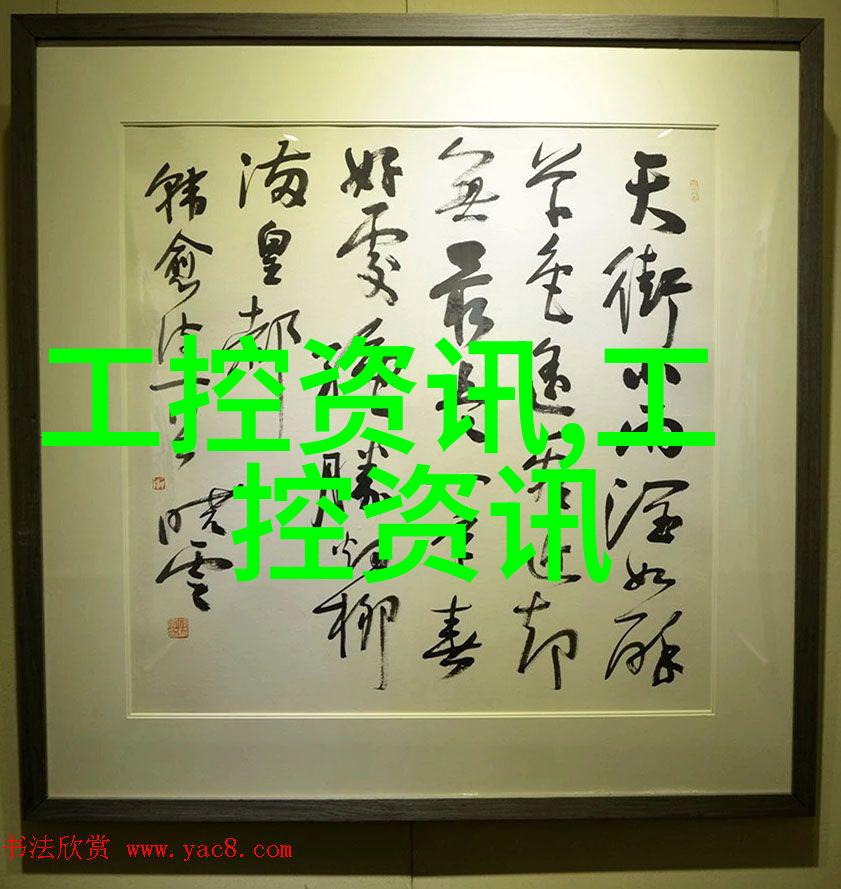 天街小雨潤如酥
草色遥看近却
無最是一年春
好處絶勝烟柳
滿皇都
韓愈诗一首 晓雲
工控资讯,工
控资讯
书法欣赏 www.yac8.com